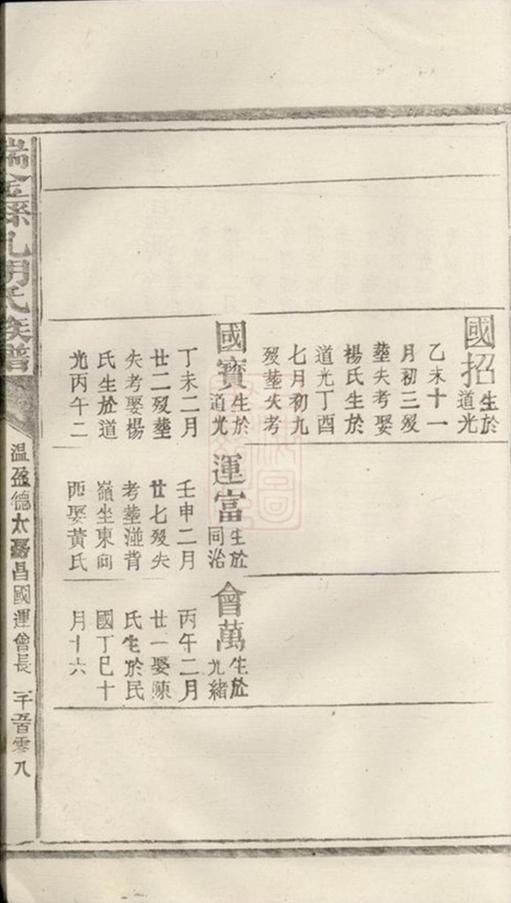 國招生於道光
乙未十一
月初三歿
塟失考娶
楊氏生於
道光丁酉
七月初九
歿塟失考
國寶生於道光
丁未二月
廿二歿塟
失考娶楊
氏生於道
光丙午二
運富生於同治
壬申二月
廿七歿失
考塟湴背
嶺坐東向
西娶黃氏
會萬生於光緒
丙午二月
廿一娶陳
氏生於民
國丁巳十
月十六
瑞金縣九明氏族譜
温 德太 昌國運會長